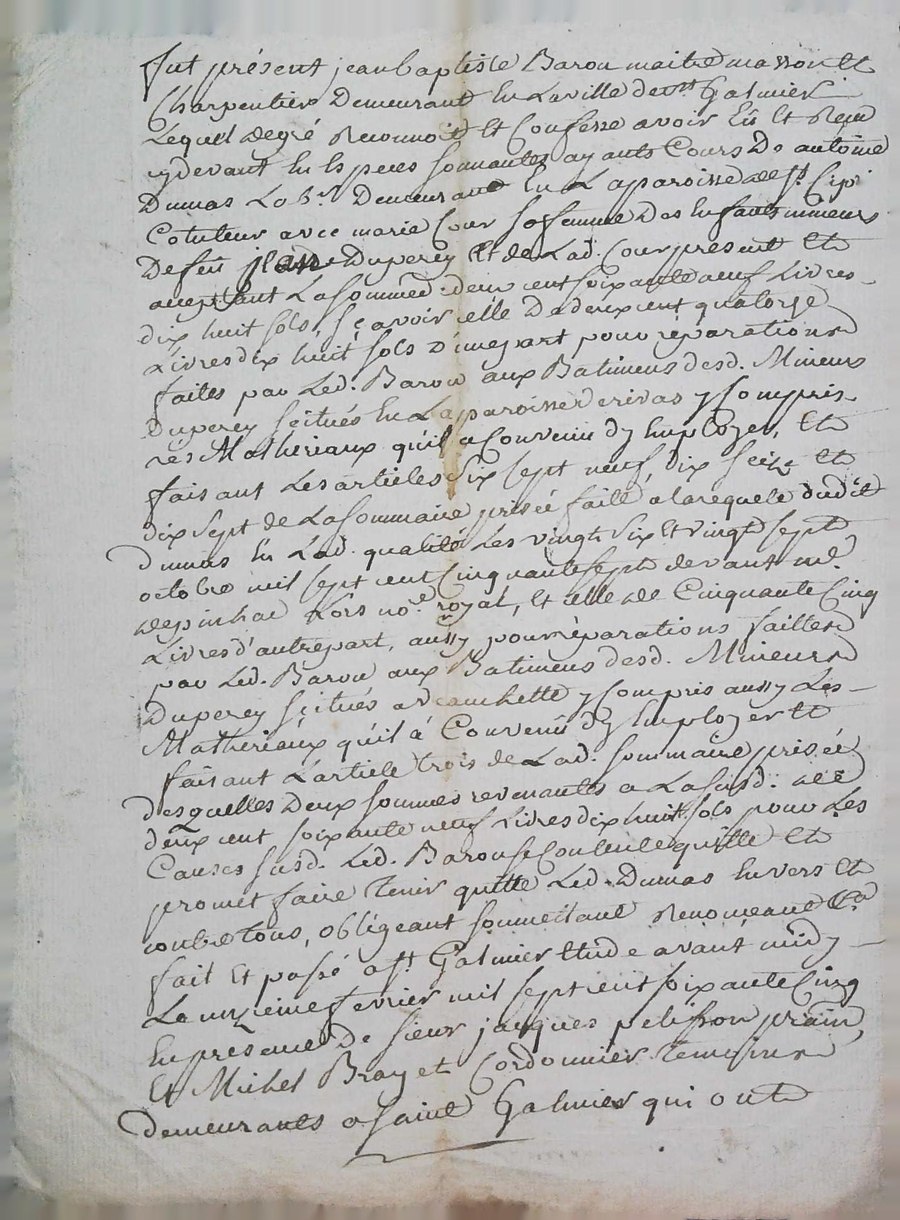 fut présent jean baptiste Barou maitre masson et
Charpentier Demeurant En La ville de st Galmier
Lequel de gré Reconnoit et Confesse avoir Eû et Reçu
cy devant En Especes sonnantes ayants Cours De antoine
Dumas Lab.r Demeurant En La paroisse de st. Cip.
Cotuteur avec marie Cour sa femme Des Enfants mineurs
De feu jean Duperey Et de Lad. Cour present et
acceptant La somme de deux cent soixante neuf Livres
dix huit sols, sçavoir celle De deux cent quatorze
Livres dix huit sols D'une part pour réparations
faites par Led. Barou aux Batimens desd. Mineurs
Duperey scitués En La paroisse de rivas y compris
les Matheriaux qu'il a convenu d'y Employer, et
faisant Les articles six sept neuf dix seize et
dix sept de La sommaire prisée faitte a la requete dudit
Dumas En Lad. qualité Les vingt six et vingt sept
octobre mil sept cent Cinquante sept devant me.
depinhac Lors no.re royal, Et celle de Cinquante Cinq
Livres d'autre part, aussy pour réparations faittes
par Led. Barou aux Batimens desd. Mineurs
Duperey scitués a y compris aussy Les
Matheriaux qu'il à Convenû d'y Employer et
faisant L'article trois de Lad. sommaire prisée
desquelles Deux sommes revenantes a La susd. de
deux cent soixante neuf Livres dix huit sols pour Les
Causes susd. Led. Barou se Contente quitte et
promet faire tenir quitte Led. Dumas Envers et
contre tous, obligeant soumettant Renonceant &a
fait Et passé a st. Galmier Etude avant midy
Le unzieme fevrier mil sept cent soixante Cinq
En présence De sieur jacques pelisson pratn
Et Michel Brayet Cordonnier temoins
demeurants a saint Galmier qui ont